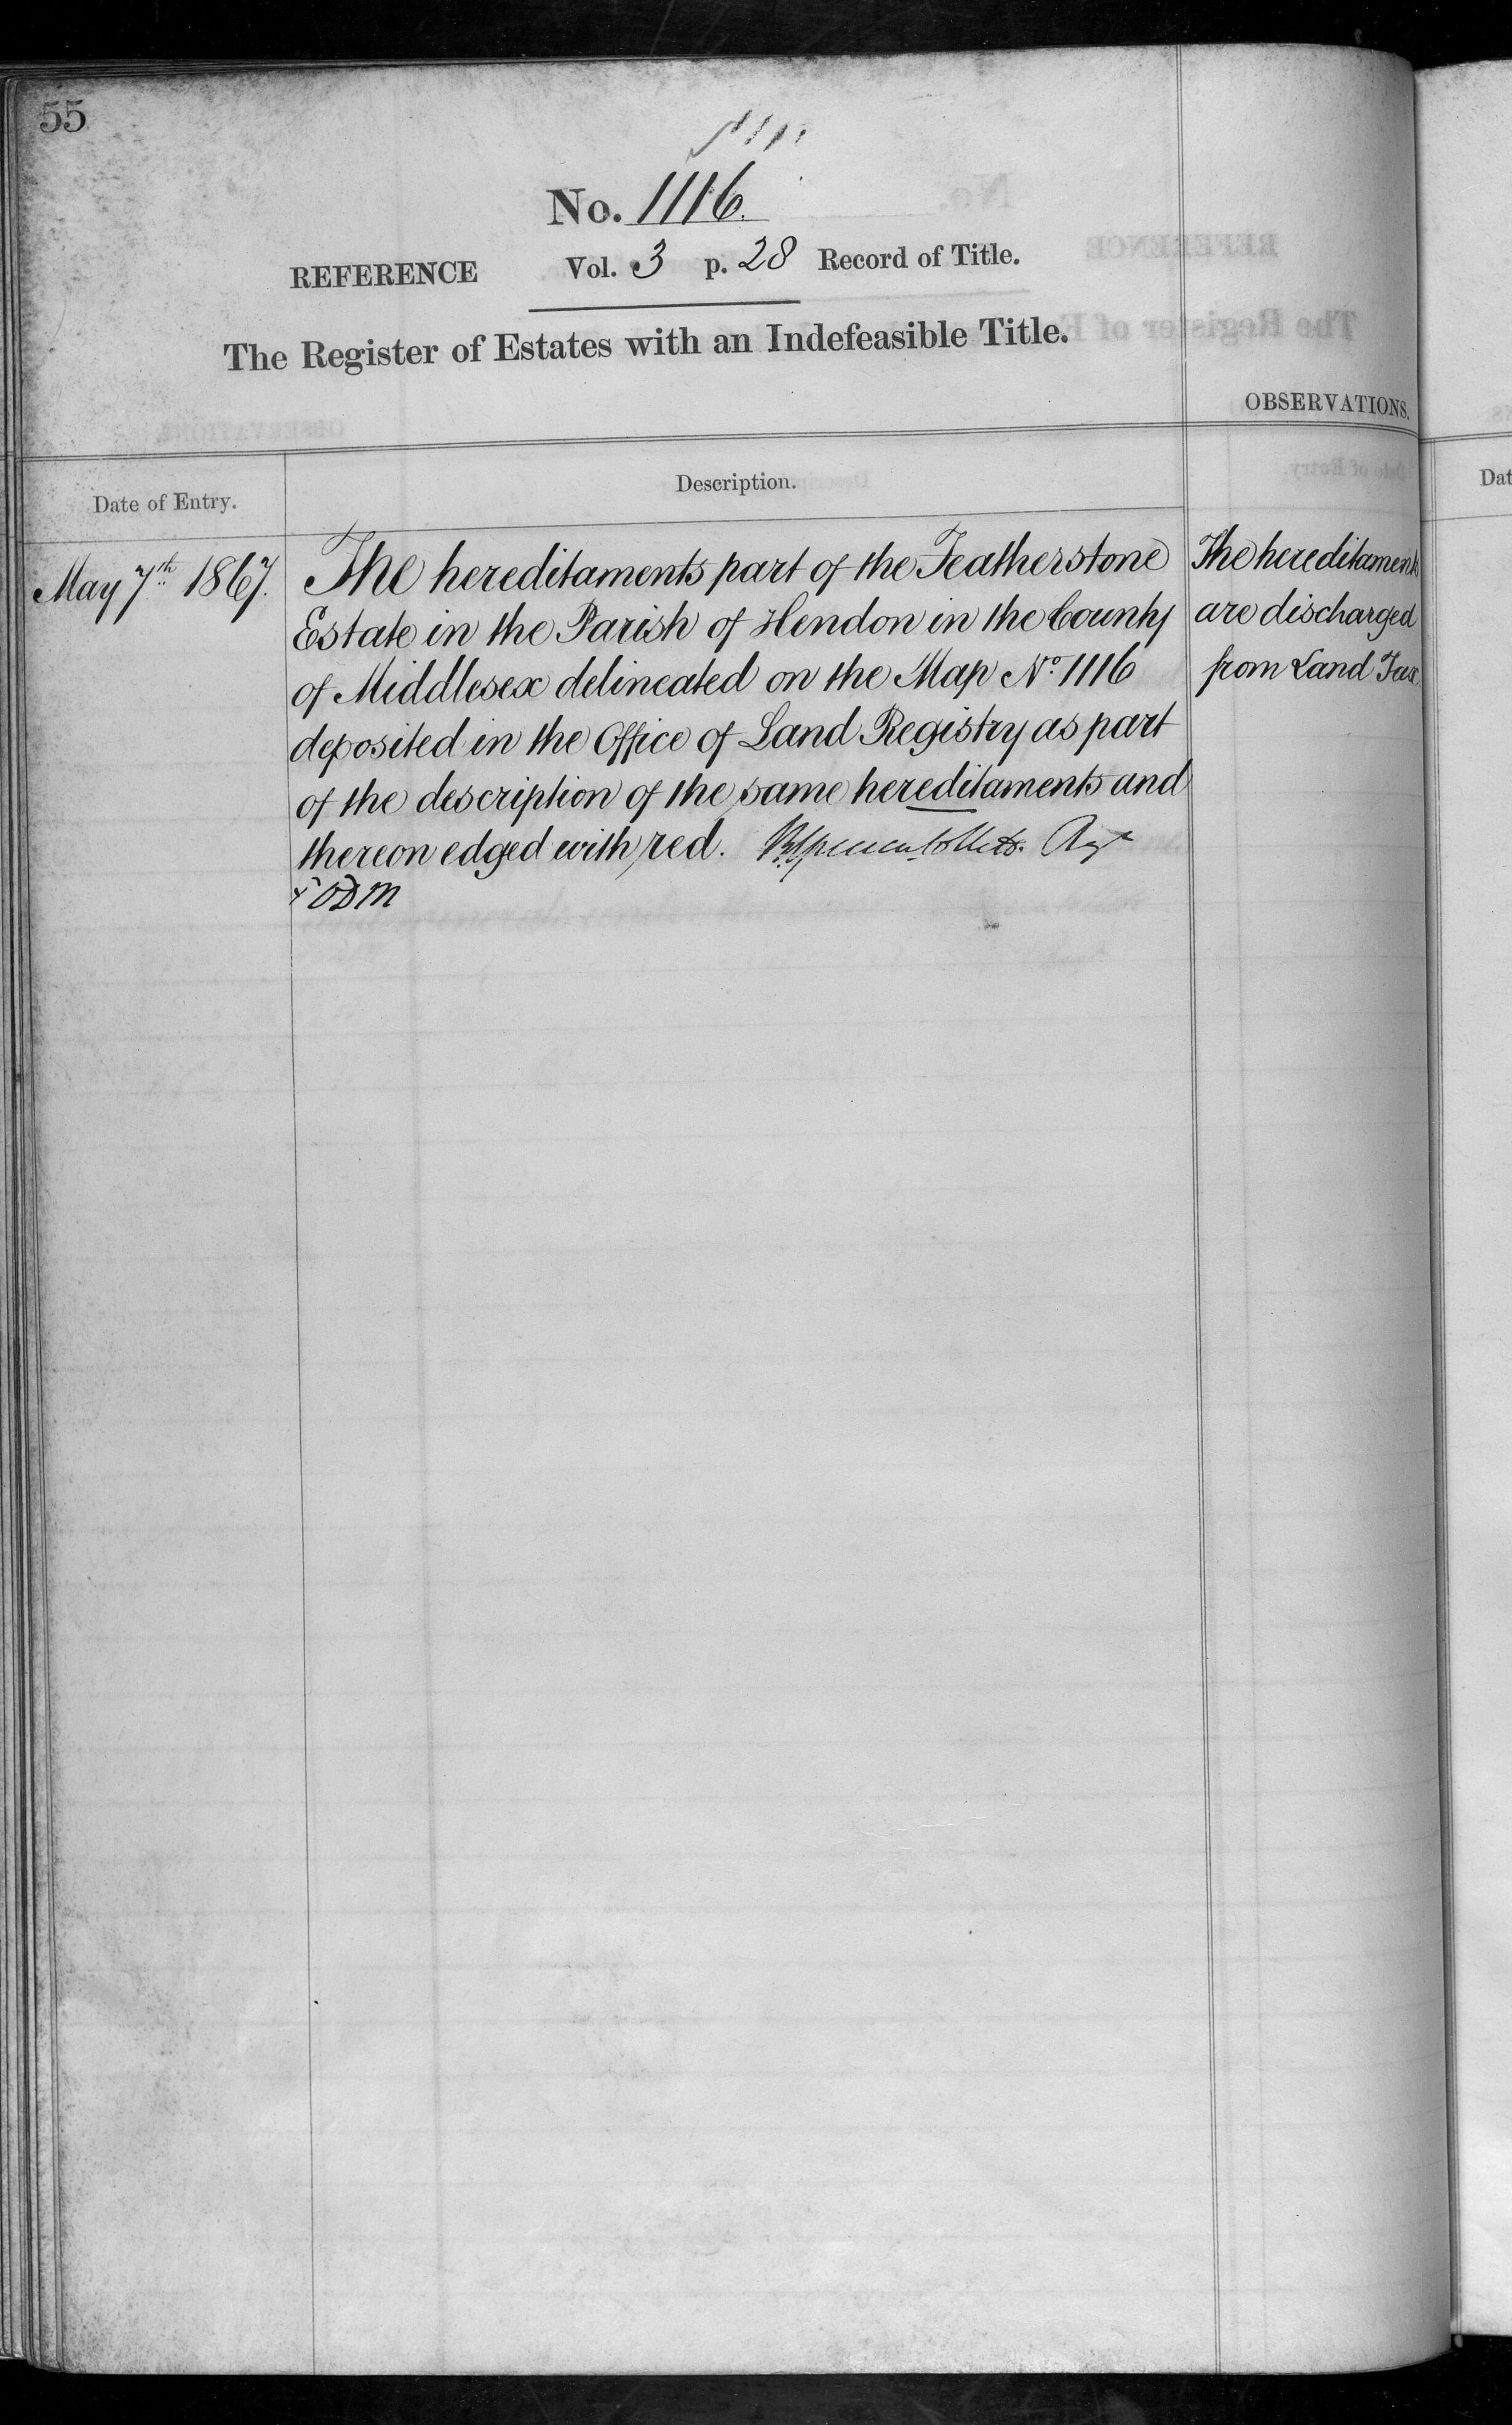 55
No. 1116.
REFERENCE Vol. 3 p. 28 Record of Title.
The Register of Estates with an Indefeasible Title.
OBSERVATIONS.
Date of Entry.
Description.
May 7th 1867.
The hereditaments part of the Featherstone
Estate in the Parish of Hendon in the County
of Middlesex delineated on the Map No. 1116
deposited in the Office of Land Registry as part
of the description of the same hereditaments and
thereon edged with red.
ODM
The hereditaments
are discharged
from Land Tax.
Dat